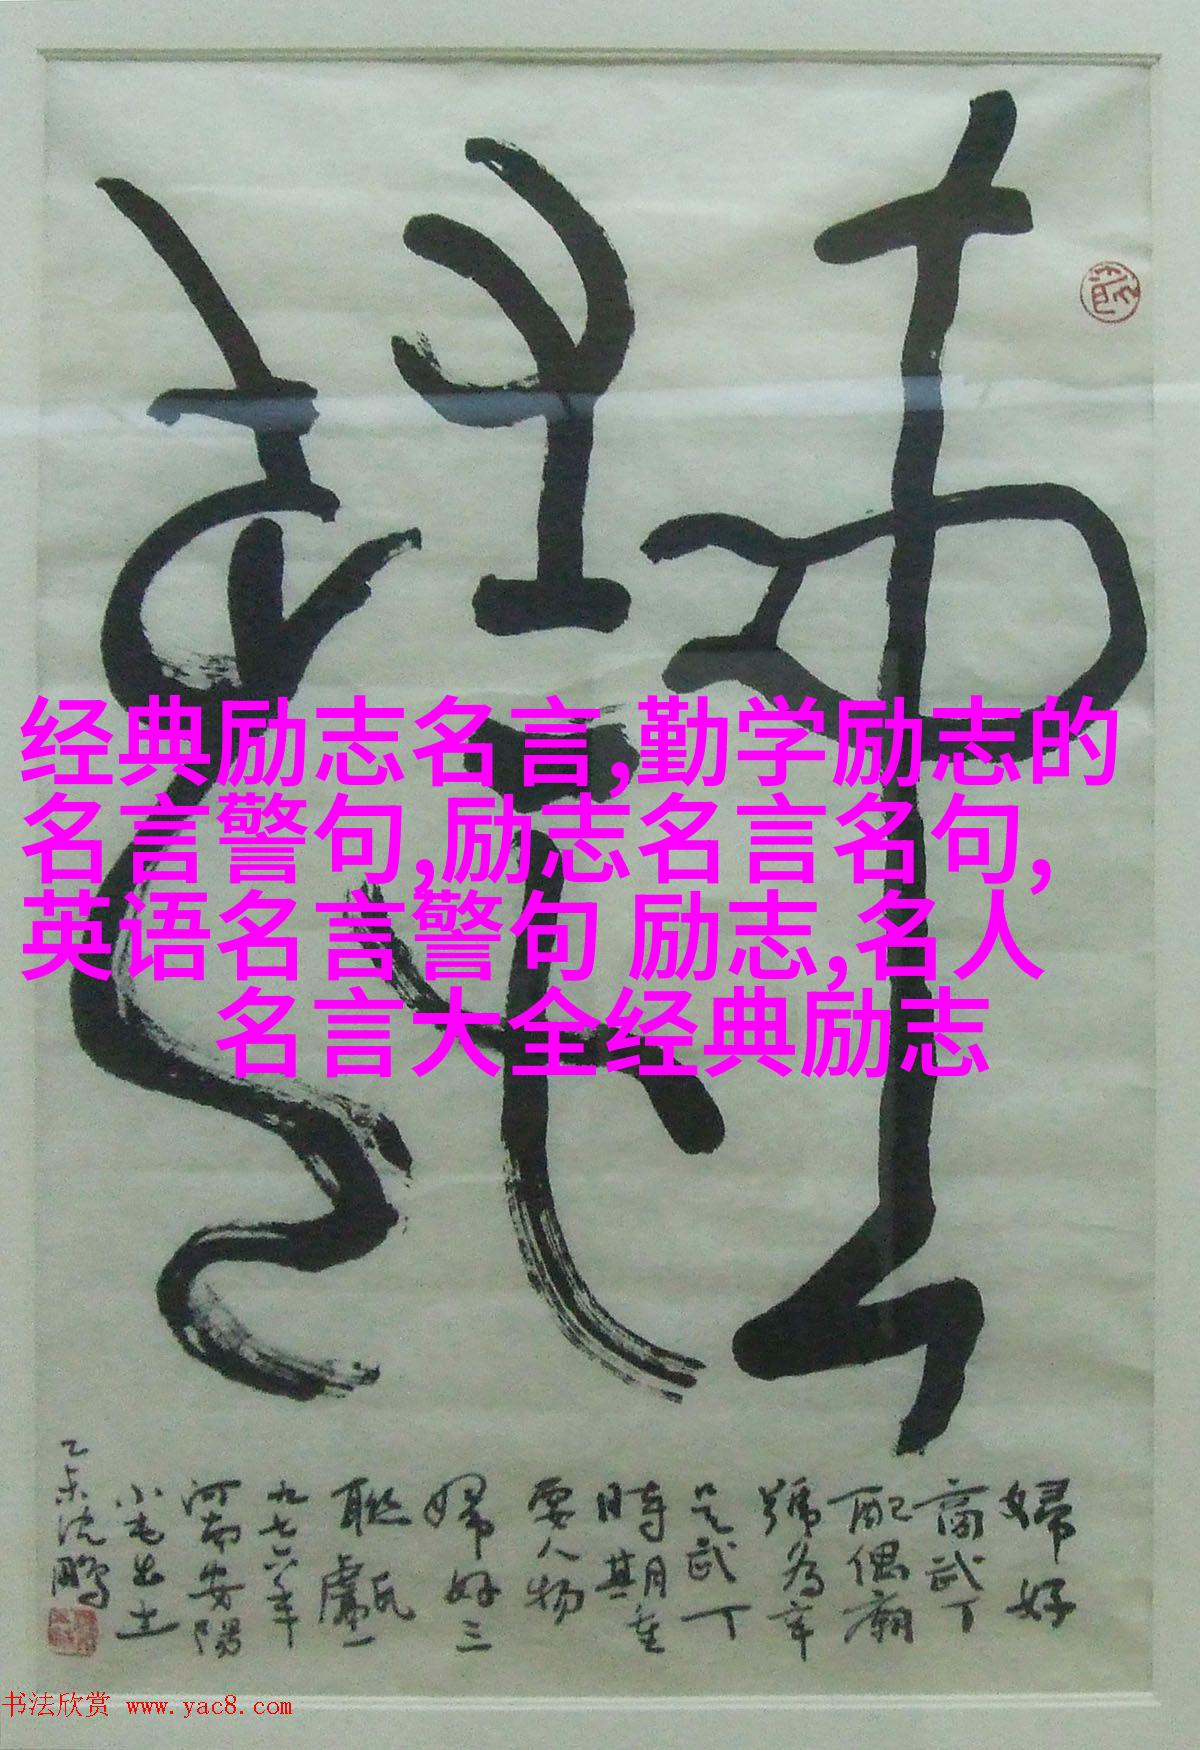 经典励志名言,勤学励志的
名言警句,励志名言名句,
英语名言警句 励志,名人
名言大全经典励志
婦好
商武丁
配偶廟
號為辛
是武丁
時期重
要人物
婦好三
聯甗一
九七六年
河南安陽
小屯出土
乙未沈鵬
书法欣赏 www.yac8.com